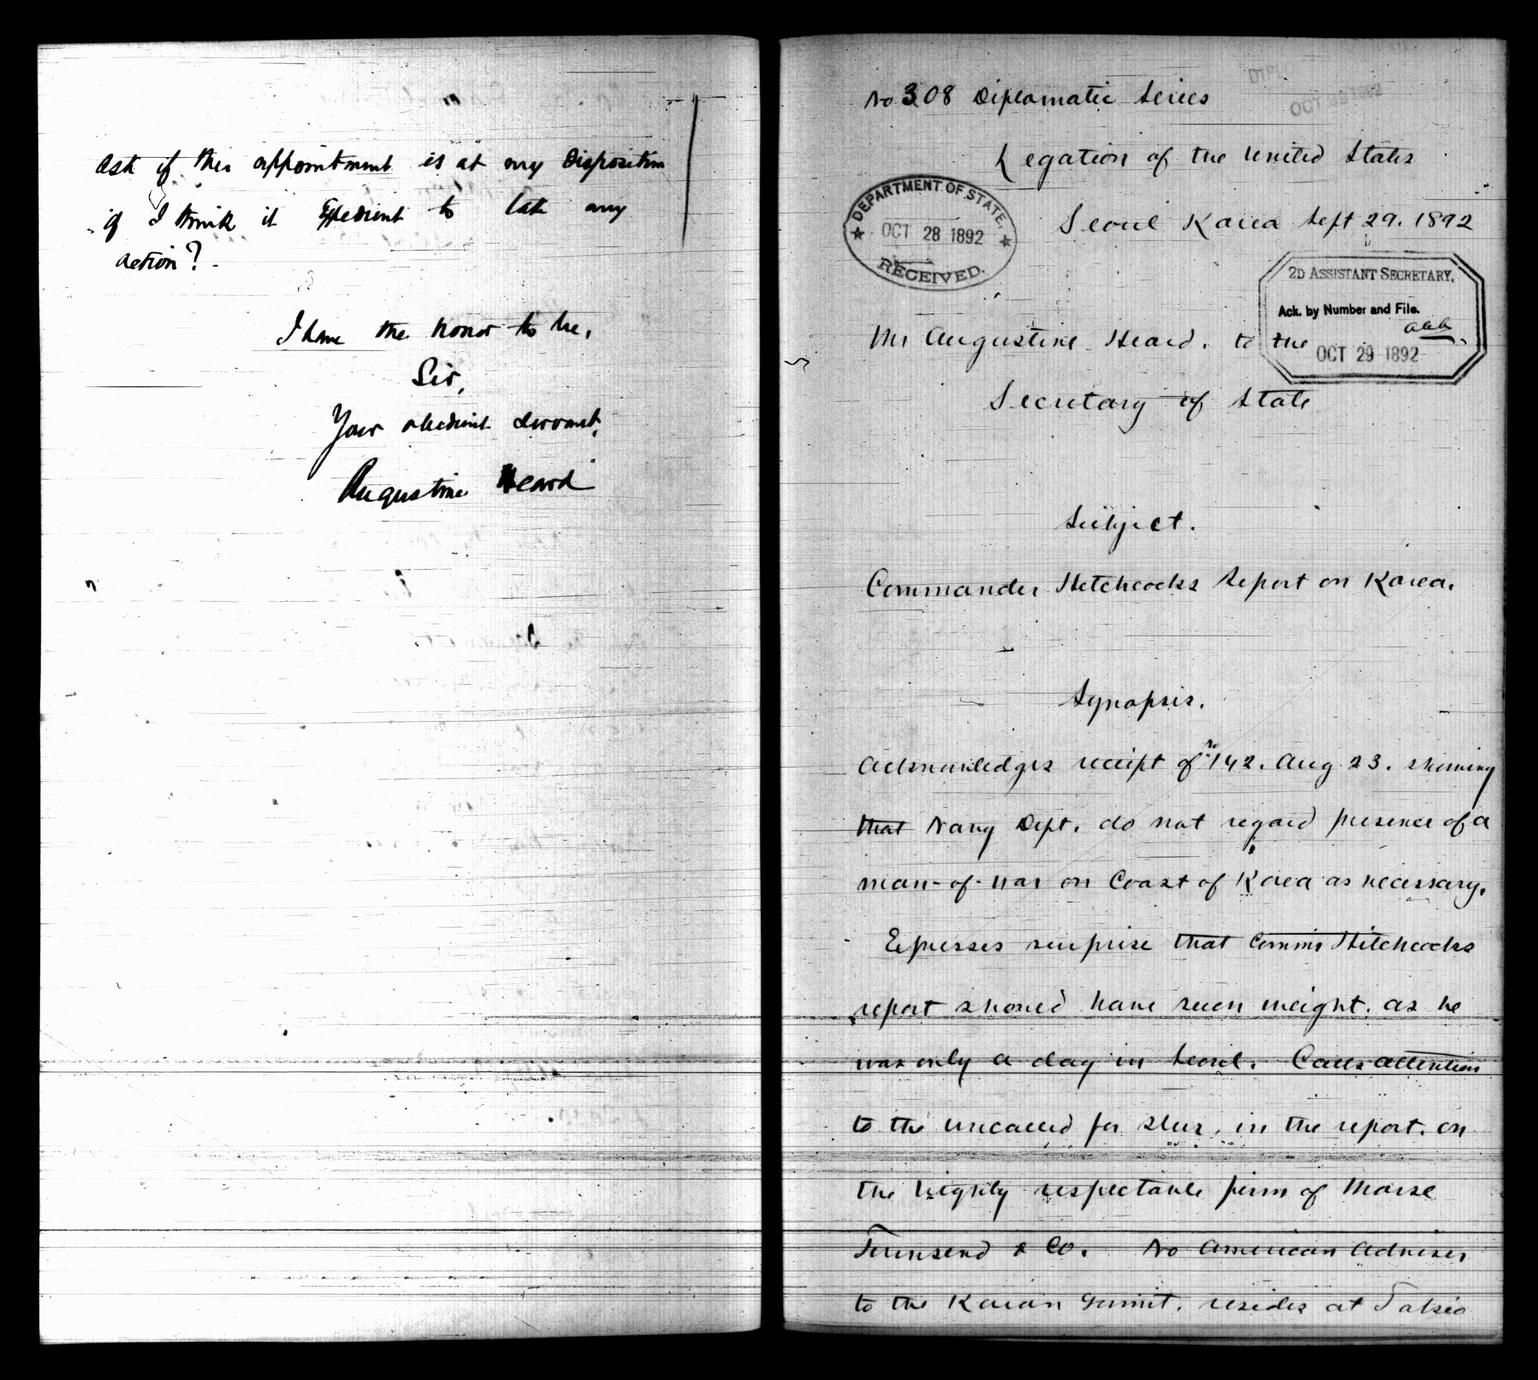 ask if this appointment is at my disposition
if I think it expedient to take any
action?
I have the honor to be,
Sir,
Your obedient servant,
Augustine Heard
No 308 Diplomatic Series
Legation of the United States
Seoul Korea Sept 29. 1892
DEPARTMENT OF STATE.
OCT 28 1892
RECEIVED.
2D ASSISTANT SECRETARY.
Ack. by Number and File.
OCT 29 1892
Mr Augustine Heard. to the
Secretary of State
Subject.
Commander Hitchcocks Report on Korea.
Synopsis.
Acknowledges receipt of No 142. Aug 23. showing
that Navy Dept. do not regard presence of a
man-of-war on Coast of Korea as necessary.
Expresses surprise that Commr Hitchcocks
report should have such weight. as he
was only a day in Seoul. Calls attention
to the uncalled for slur, in the report. on
the highly respectable firm of Morse
Townsend & Co. No American Adviser
to the Korean Gvmnt. resides at